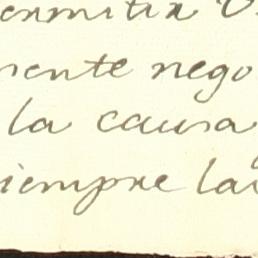 ermitir
mente nego
la causa
siempre la